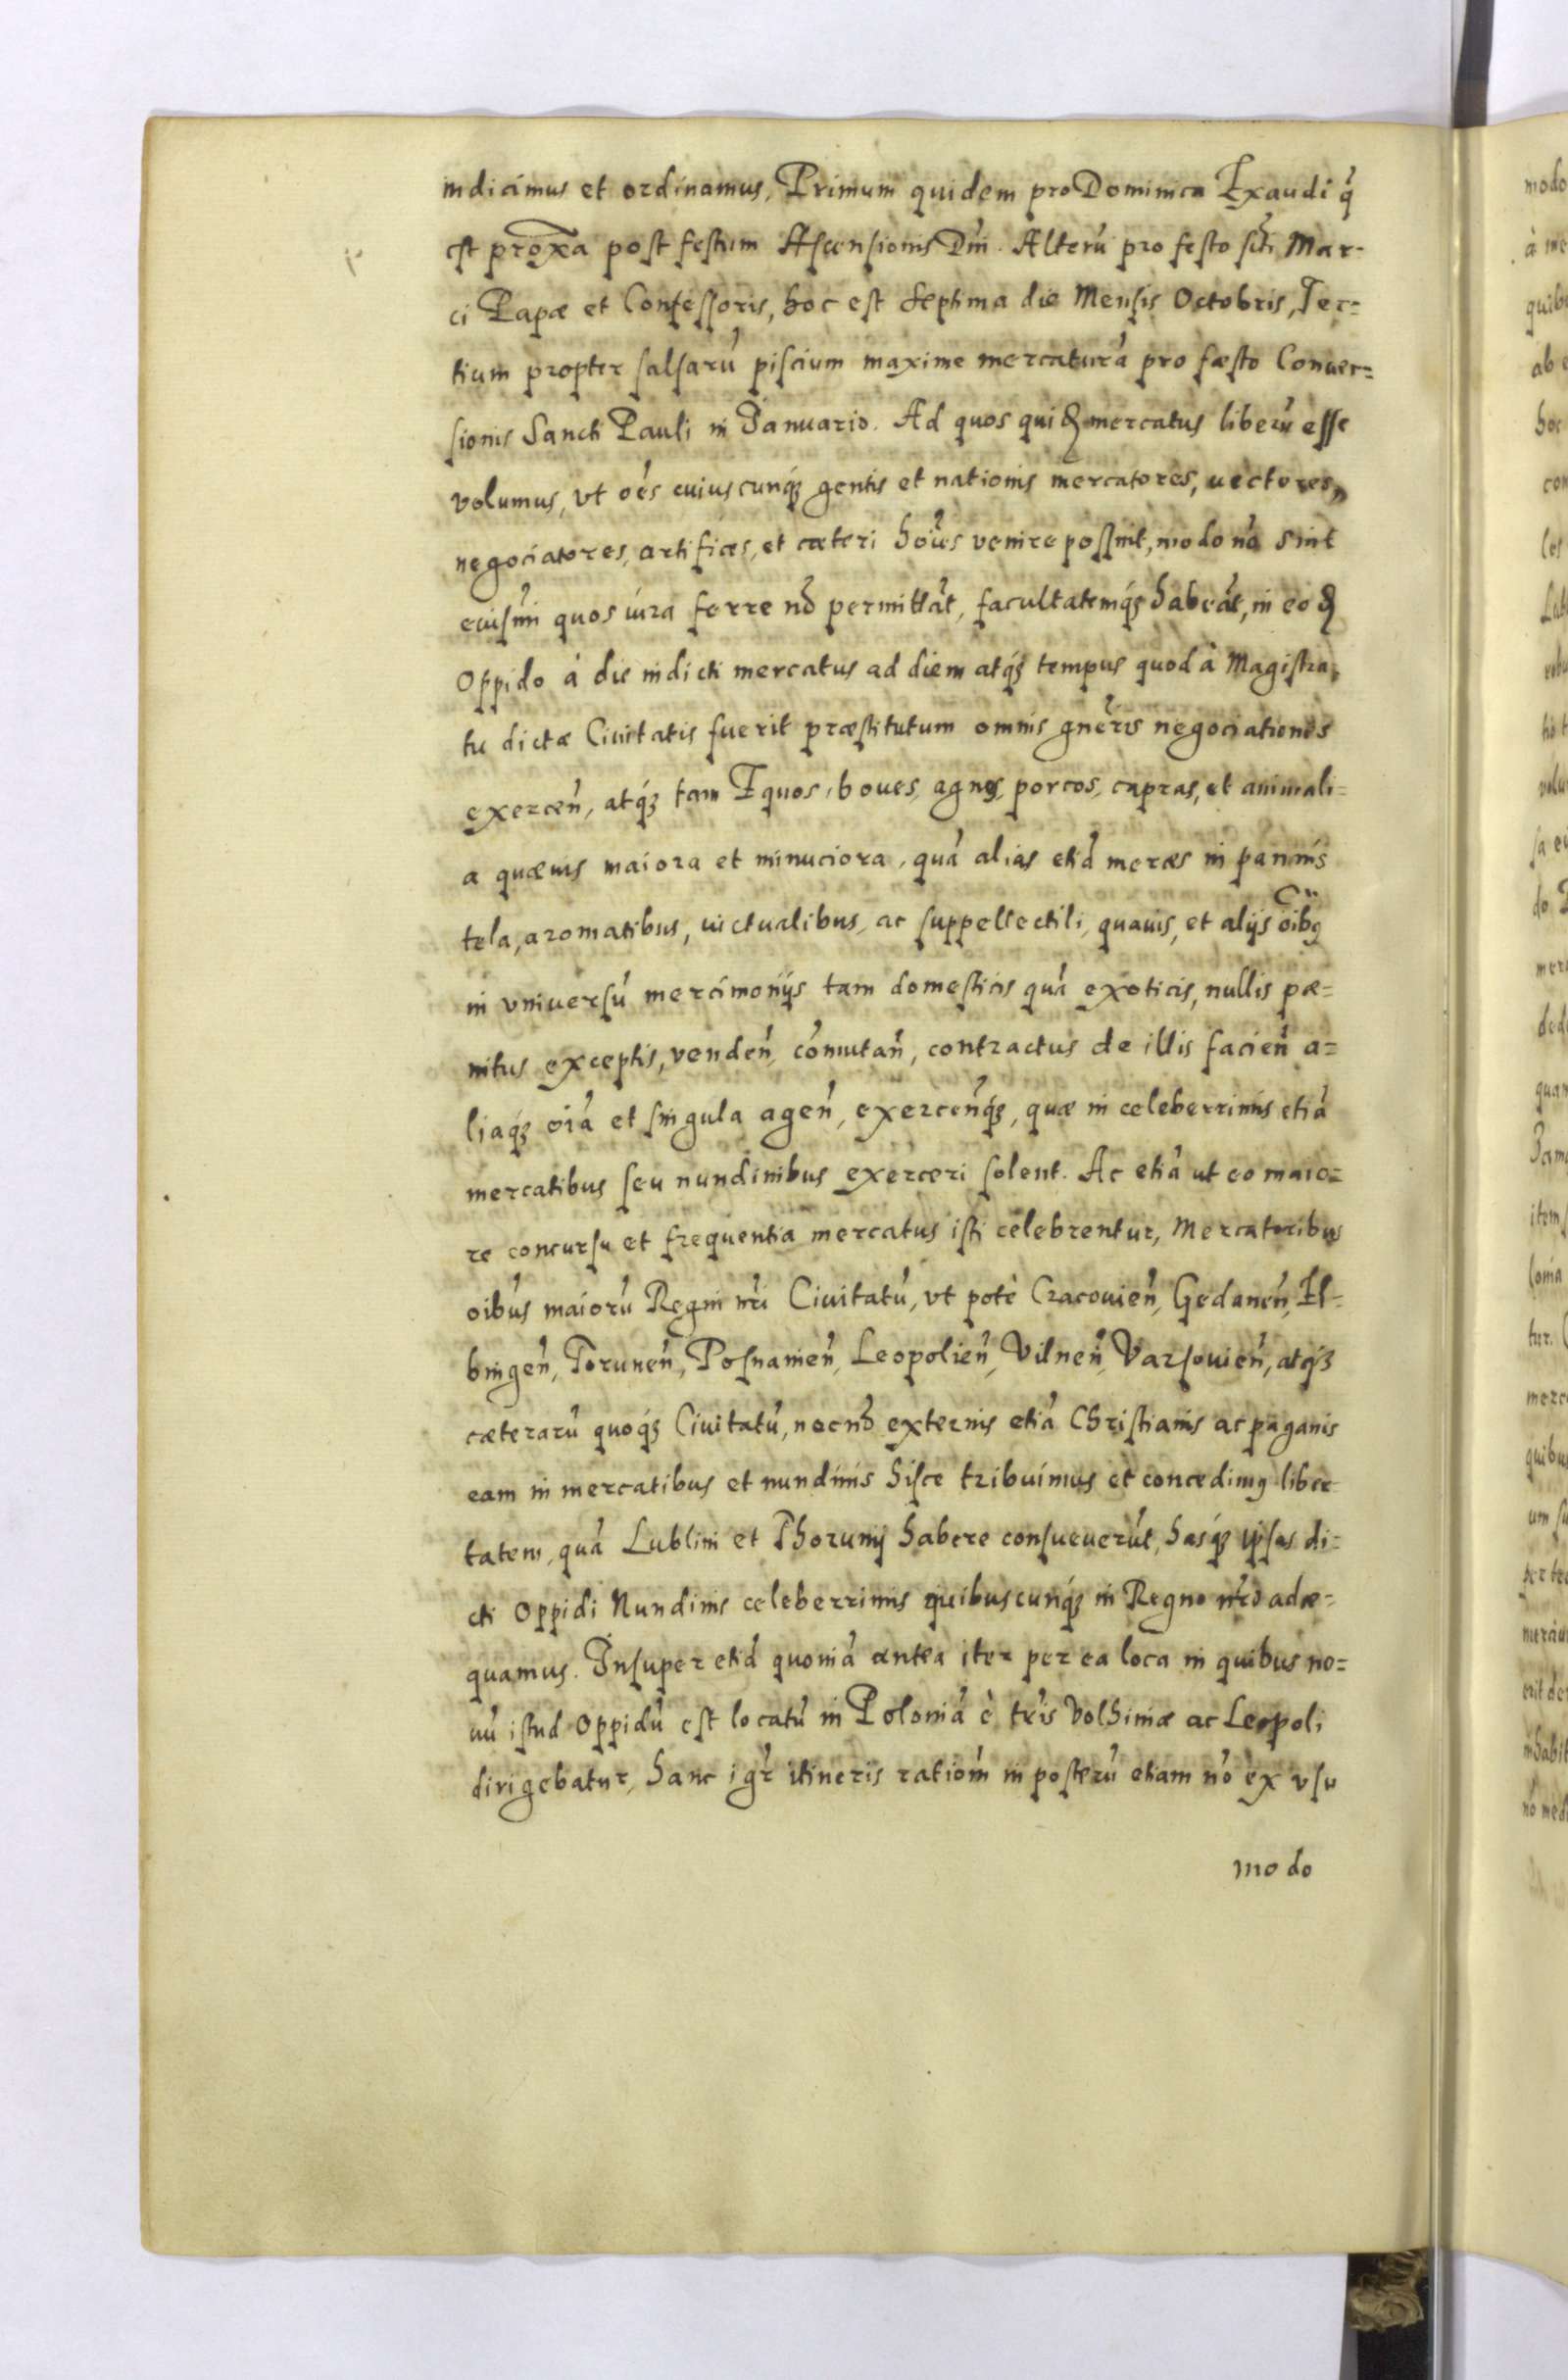 indicimus et ordinamus, Primum quidem pro Dominica Exaudi q̃
est proxa post festum Ascensionis Dñi. Alterũ pro festo scti Mar-
ci Papæ et Confessoris, hoc est septima die Mensis Octobris, Ter=
tium propter salsarũ piscium maxime mercaturã pro fæsto Conuer=
sionis Sancti Pauli in Januario. Ad quos quidẽ mercatus liberũ esse
volumus, vt oẽs cuiuscunq́ꝫ gentis et nationis mercatores, uectores,
negociatores, artifices, et cæteri hoĩes venire possint, modo nõ sint
eiusm̃i quos iura ferre nõ permittãt, facultatemq́ꝫ habeãt, in eodẽ
Oppido à die indicti mercatus ad diem atq́ꝫ tempus quod à Magistra,
tu dictæ Ciuitatis fuerit præstitutum omnis gñeris negociationes
exerceñ, atq́ꝫ tam Equos, boues, agnos, porcos, capras, et animali=
a quæuis maiora et minuciora, quã alias etiã merces in pannis
tela, aromatibus, uictualibus, ac suppellectili, quauis, et alijs oĩbꝰ
in vniuersũ mercimonijs tam domesticis quã exoticis, nullis pæ=
nitus exceptis, vendeñ, cõmutañ, contractus de illis facieñ a=
liaq́ꝫ oĩa et singula ageñ, exerceñq́ꝫ, quæ in celeberrimis etiã
mercatibus seu nundinibus exerceri solent. Ac etiã ut eo maio=
re concursu et frequentia mercatus isti celebrentur, Mercatoribus
oĩbus maiorũ Regni nr̃i Ciuitatũ, vt potè Cracouieñ, Gedaneñ, El=
bingeñ, Toruneñ, Posnanieñ, Leopolieñ, Vilneñ, Varsouieñ, atq́ꝫ
cæterarũ quoq́ꝫ Ciuitatũ, necnõ externis etiã Christianis ac paganis
eam in mercatibus et nundinis hisce tribuimus et concedimꝰ liber
tatem, quã Lublini et Thorunij habere consueuerũt, hasq́ꝫ ipsas di=
cti Oppidi Nundinis celeberrimis quibuscunq́ꝫ in Regno nr̃o adæ=
quamus. Insuper etiã quoniã antea iter per ea loca in quibus no=
uũ istud Oppidũ est locatũ in Poloniã è tr̃is Volhiniæ ac Leopoli
dirigebatur, hanc igr̃ itineris ratiom̃ in posterũ etiam nõ ex vsu
modo